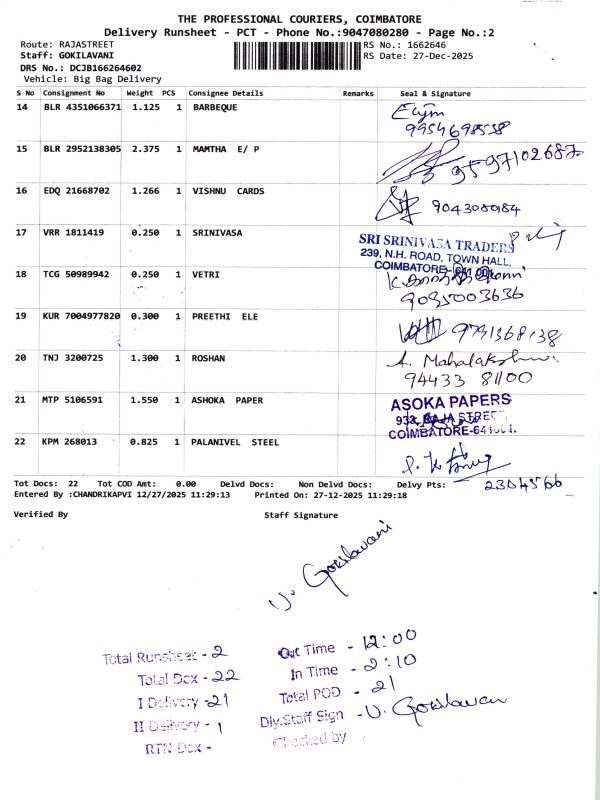 THE PROFESSIONAL COURIERS, COIMBATORE
Delivery Runsheet - PCT - Phone No.:9047080280 - Page No.:2
Route: RAJASTREET
RS No.: 1662646
Staff: GOKILAVANI
RS Date: 27-Dec-2025
DRS No.: DCJB166264602
Vehicle: Big Bag Delivery
S No Consignment No Weight PCS Consignee Details Remarks Seal & Signature
14 BLR 4351066371 1.125 1 BARBEQUE
9954698538
15 BLR 2952138305 2.375 1 MAMTHA E/ P 9597102687
16 EDQ 21668702 1.266 1 VISHNU CARDS 9043080184
17 VRR 1811419 0.250 1 SRINIVASA
SRI SRINIVASA TRADERS
239, N.H. ROAD, TOWN HALL,
COIMBATORE-641 001
18 TCG 50989942 0.250 1 VETRI
9095003636
19 KUR 7004977820 0.300 1 PREETHI ELE 9791368138
20 TNJ 3200725 1.300 1 ROSHAN
A. Mahalakshmi
94433 81100
21 MTP 5106591 1.550 1 ASHOKA PAPER
ASOKA PAPERS
RAJA STREET,
COIMBATORE-641001.
22 KPM 268013 0.825 1 PALANIVEL STEEL
2304566
Tot Docs: 22 Tot COD Amt: 0.00 Delvd Docs: Non Delvd Docs: Delvy Pts:
Entered By :CHANDRIKAPVI 12/27/2025 11:29:13 Printed On: 27-12-2025 11:29:18
Verified By Staff Signature
U. Gokilavani
Total Runsheet - 2
Total Dox - 22
I Delivery - 21
II Delivery - 1
RTN Dox -
Out Time - 12:00
In Time - 2:10
Total POD - 21
Dly.Staff Sign - U. Gokilavani
Checked by